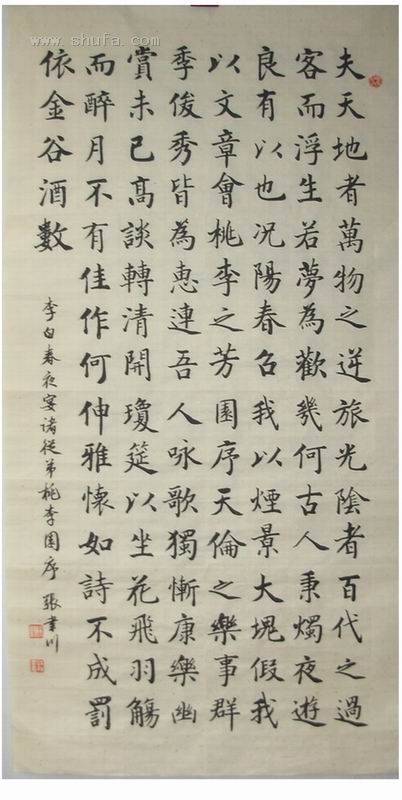 www.shufa.com
夫天地者萬物之逆旅光陰者百代之過
客而浮生若夢為歡幾何古人秉燭夜遊
良有以也況陽春召我以煙景大塊假我
以文章會桃李之芳園序天倫之樂事群
季俊秀皆為惠連吾人咏歌獨慚康樂幽
賞未已髙談轉清開瓊筵以坐花飛羽觴
而醉月不有佳作何伸雅懷如詩不成罰
依金谷酒數
李白春夜宴诸從弟桃李園序 張